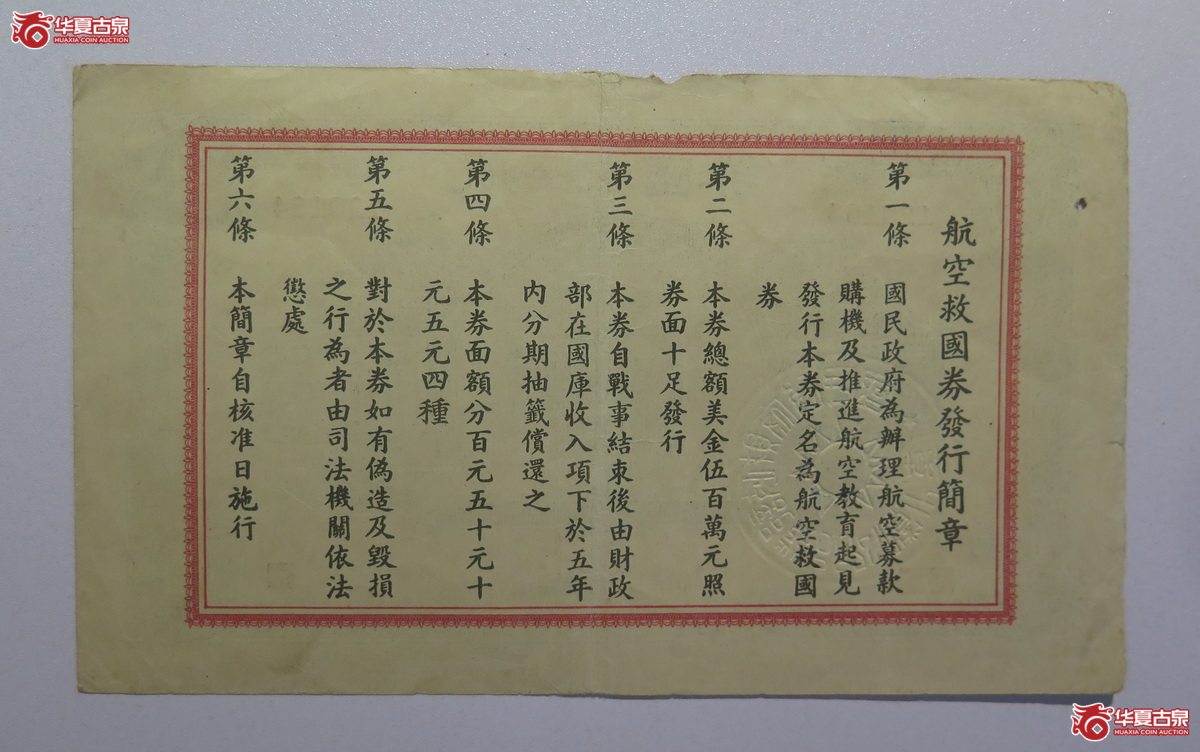 华夏古泉
HUAXIA COIN AUCTION
航空救國券發行簡章
第一條 國民政府為辦理航空募款
購機及推進航空教育起見
發行本券定名為航空救國
券
第二條 本券總額美金伍百萬元照
券面十足發行
第三條 本券自戰事結束後由財政
部在國庫收入項下於五年
內分期抽籤償還之
第四條 本券面額分百元五十元十
元五元四種
第五條 對於本券如有偽造及毀損
之行為者由司法機關依法
懲處
第六條 本簡章自核准日施行
华夏古泉
HUAXIA COIN AUCTION